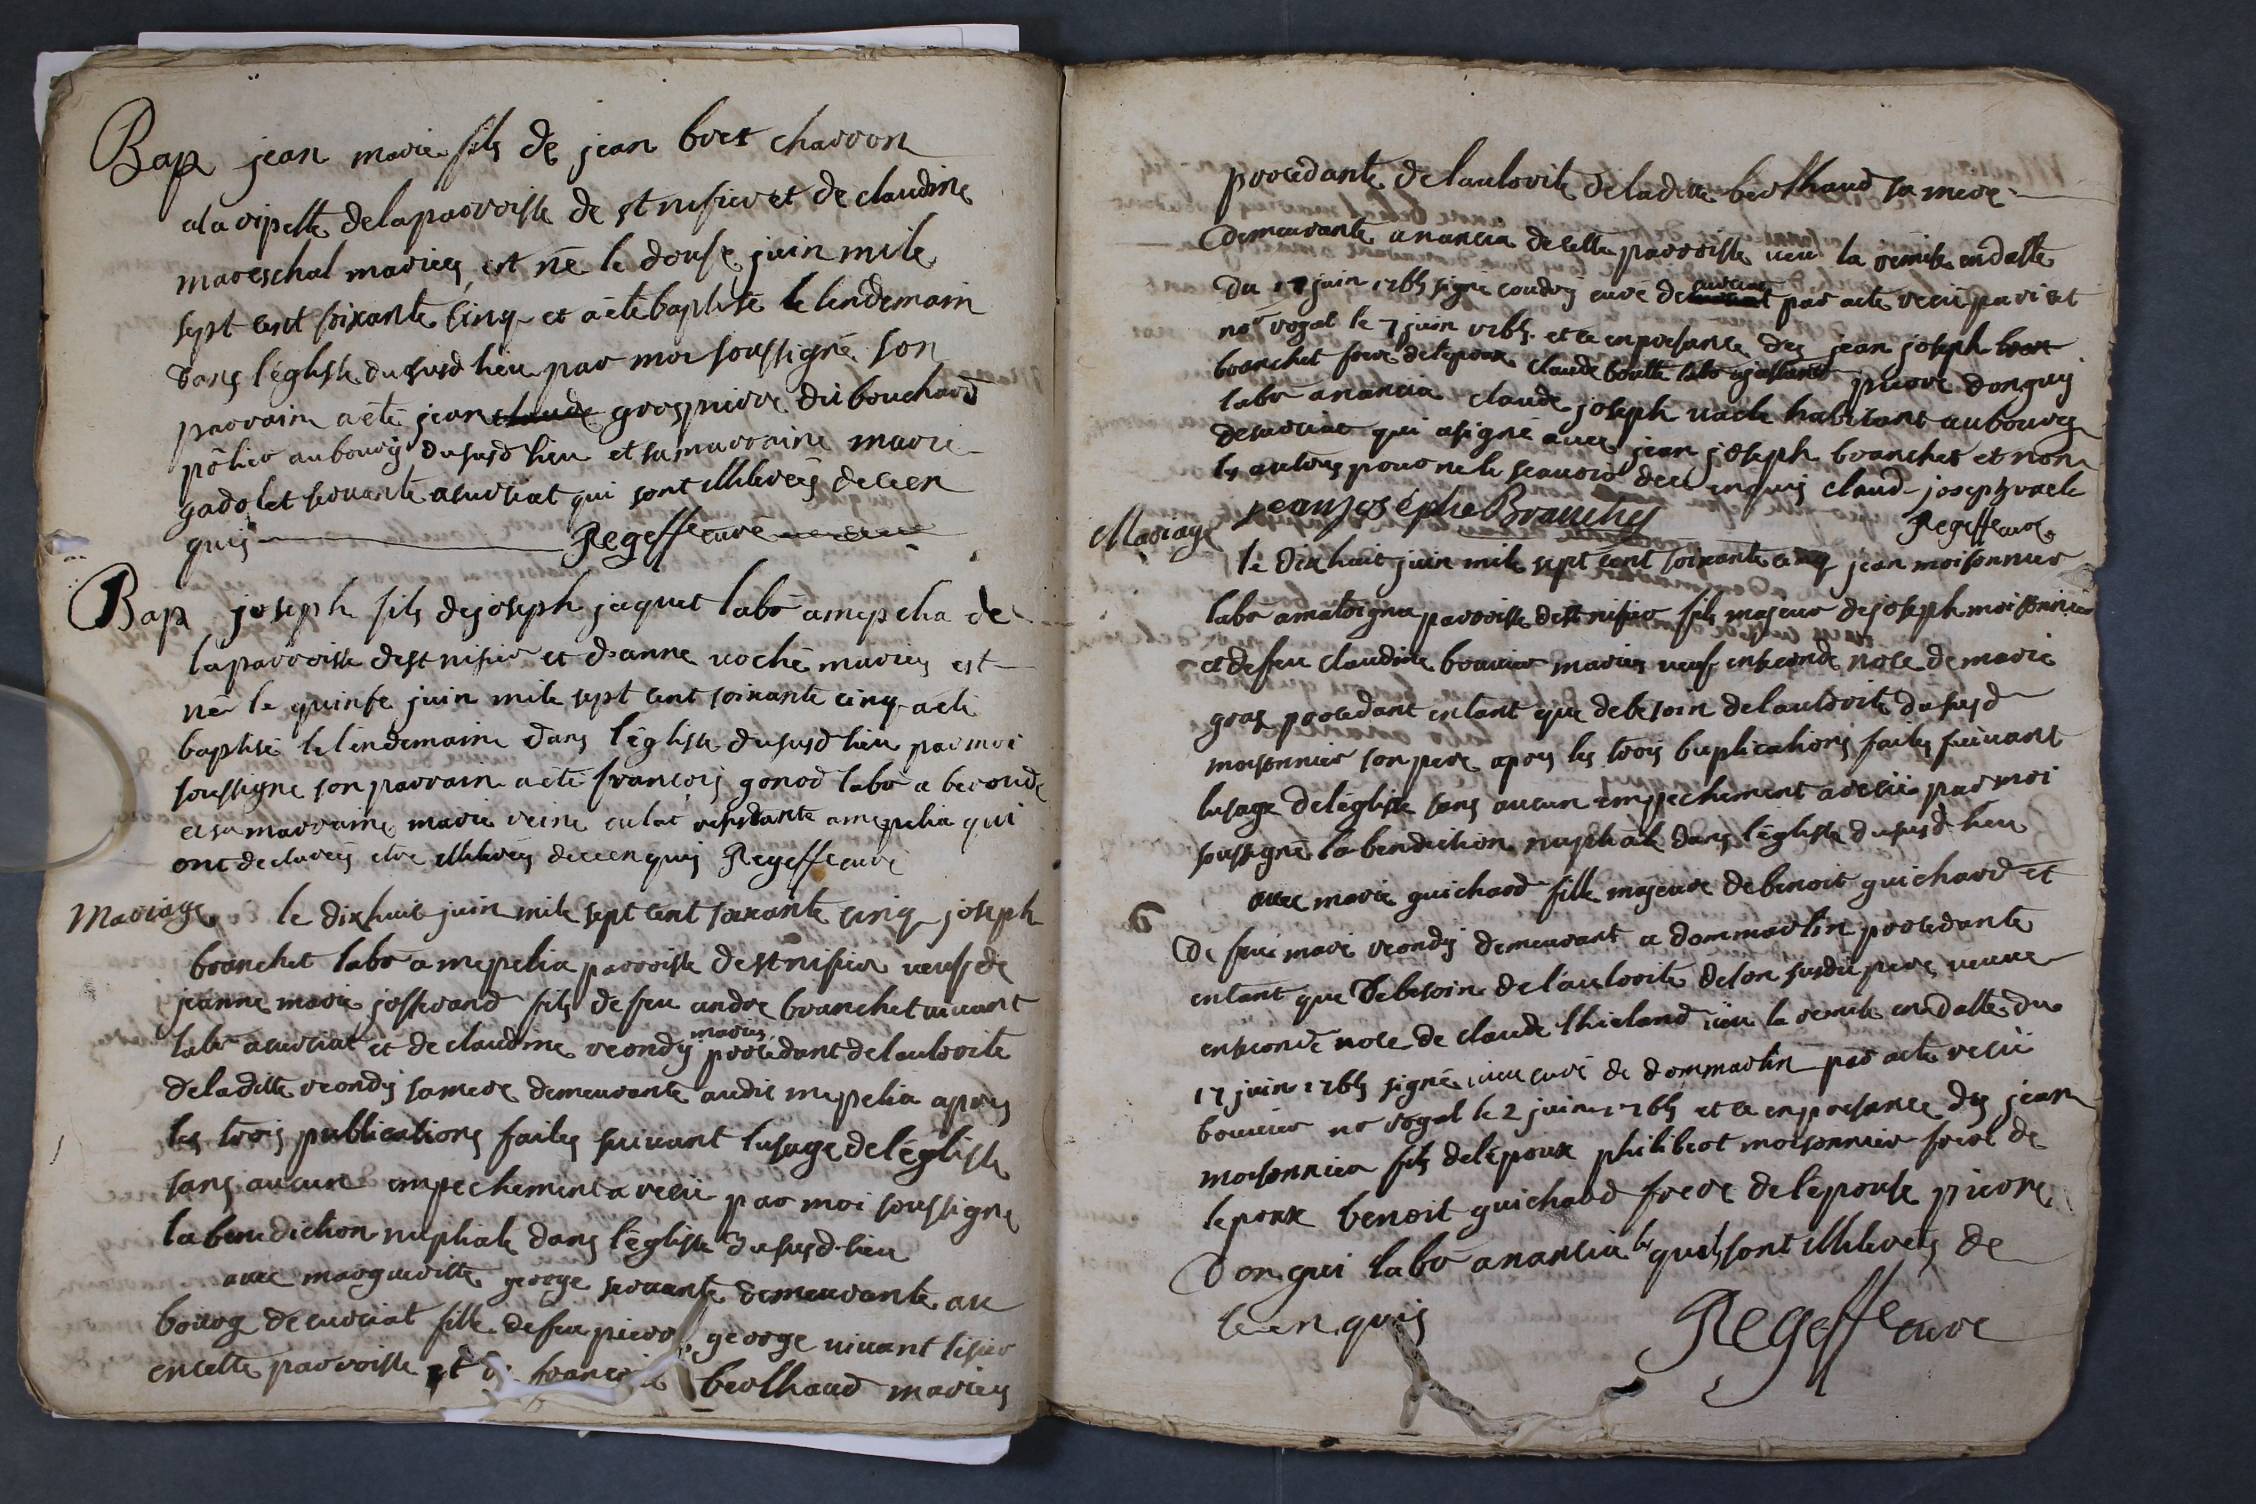 Bap jean marie fils de jean bret charron
a la ripette de la parroisse de st nisier et de claudine
mareschal mariés est né le douse juin mile
sept cent soixante cinq et a été baptisé le lendemain
dans l'église du susd lieu par moi soussigné son
parrain a été jean claude grospierre dit bouchard
pôtier au bourg du susd lieu et sa marraine marie
gadolet servante a curciat qui sont illiterés de ce en
quis Regeffe curé
Bap joseph fils de joseph jaquet labô a mepelia de
la parroisse de st nisier et d'anne roche mariés est
né le quinse juin mile sept cent soixante cinq a été
baptisé le lendemain dans l'église du susd lieu par moi
soussigné son parrain a été françois gonod labô a
et sa marraine marie reine résidante a mepelia qui
ont declarés etre illiterés de ce enquis Regeffe curé
Mariage le dixhuit juin mile sept cent soixante cinq joseph
branchet labô a mepelia parroisse de st nisier veuf de
jeanne marie josserand fils de feu andré branchet vivant
labô a curciat et de claudine reondy mariés procédant de l'autorité
de la ditte reondy sa mere demeurante audit mepelia après
les trois publications faites suivant l'usage de l'église
sans aucun empechement a reçu par moi soussigné
la benediction nuptiale dans l'église du susd lieu
avec margueritte george servante demeurante au
bourg de curciat fille de feu pierre george vivant tisier
en cette parroisse et de françoise berthaud mariés
procédante de l'autorité de la ditte berthaud sa mere
demeurante a nancia de cette parroisse veu la remise en datte
du 17 juin 1765 signé coudry curé de curciat par acte reçu par
nore royal le 7 juin 1765 et ce en présance des jean joseph
branchet frere de l'epoux claude pierre donguy
labô a nancia claude joseph vacle habitant au bourg
de curciat qui a signé avec jean joseph branchet et non
les autres pour ne le scavoir de ce enquis claud joseph vacle
jean joséphe Branchy Regeffe curé
Mariage
le dix huit juin mile sept cent soixante cinq jean moisonnier
labô a parroisse de st nisier fils majeur de joseph moisonnier
et de feu claudine bouvier mariés veuf en seconde noce de marie
gras procédant en tant que de besoin de l'autorité du susd
moisonnier son pere apres les trois buplications faites suivant
l'usage de l'église sans aucun empechement a reçu par moi
soussigné la benediction nuptiale dans l'église du susd lieu
6 avec marie guichard fille majeure de benoit guichard et
de feue marie reondy demeurant a dommartin procédante
en tant que de besoin de l'autorité de son susdit pere veuve
en seconde noce de claude veu la remise en datte du
17 juin 1765 signé curé de dommartin par acte reçu
bouvier nore royal le 2 juin 1765 et ce en présance des jean
moisonnier fils de l'epoux philibert moisonnier frere de
l'epoux benoit guichard frere de l'epouse pierre
donguy labô a nancia lesquels sont illiterés de
ce enquis Regeffe curé